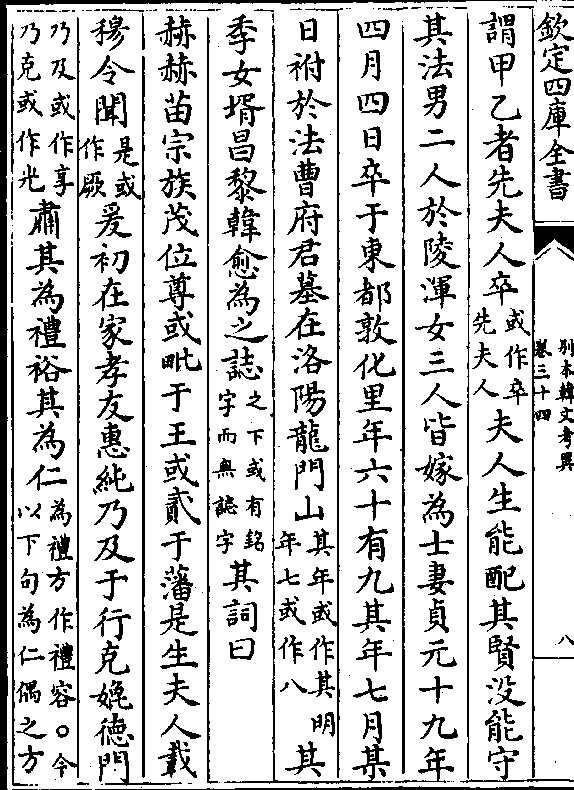 欽定四庫全書
别本韓文考異
卷三十四
八
謂甲乙者先夫人卒或作卒先夫人夫人生能配其賢没能守
其法男二人於陵渾女三人皆嫁為士妻貞元十九年
四月四日卒于東都敦化里年六十有九其年七月某
日祔於法曹府君墓在洛陽龍門山其年或作其明年七或作八其
季女壻昌黎韓愈為之誌之下或有銘字而無誌字其詞曰
赫赫苗宗族茂位尊或毗于王或貳于藩是生夫人載
穆令聞是或作厥爰初在家孝友惠純乃及于行克媲德門
乃及或作享乃克或作光肅其為禮裕其為仁為禮方作禮容○今以下句為仁偶之方